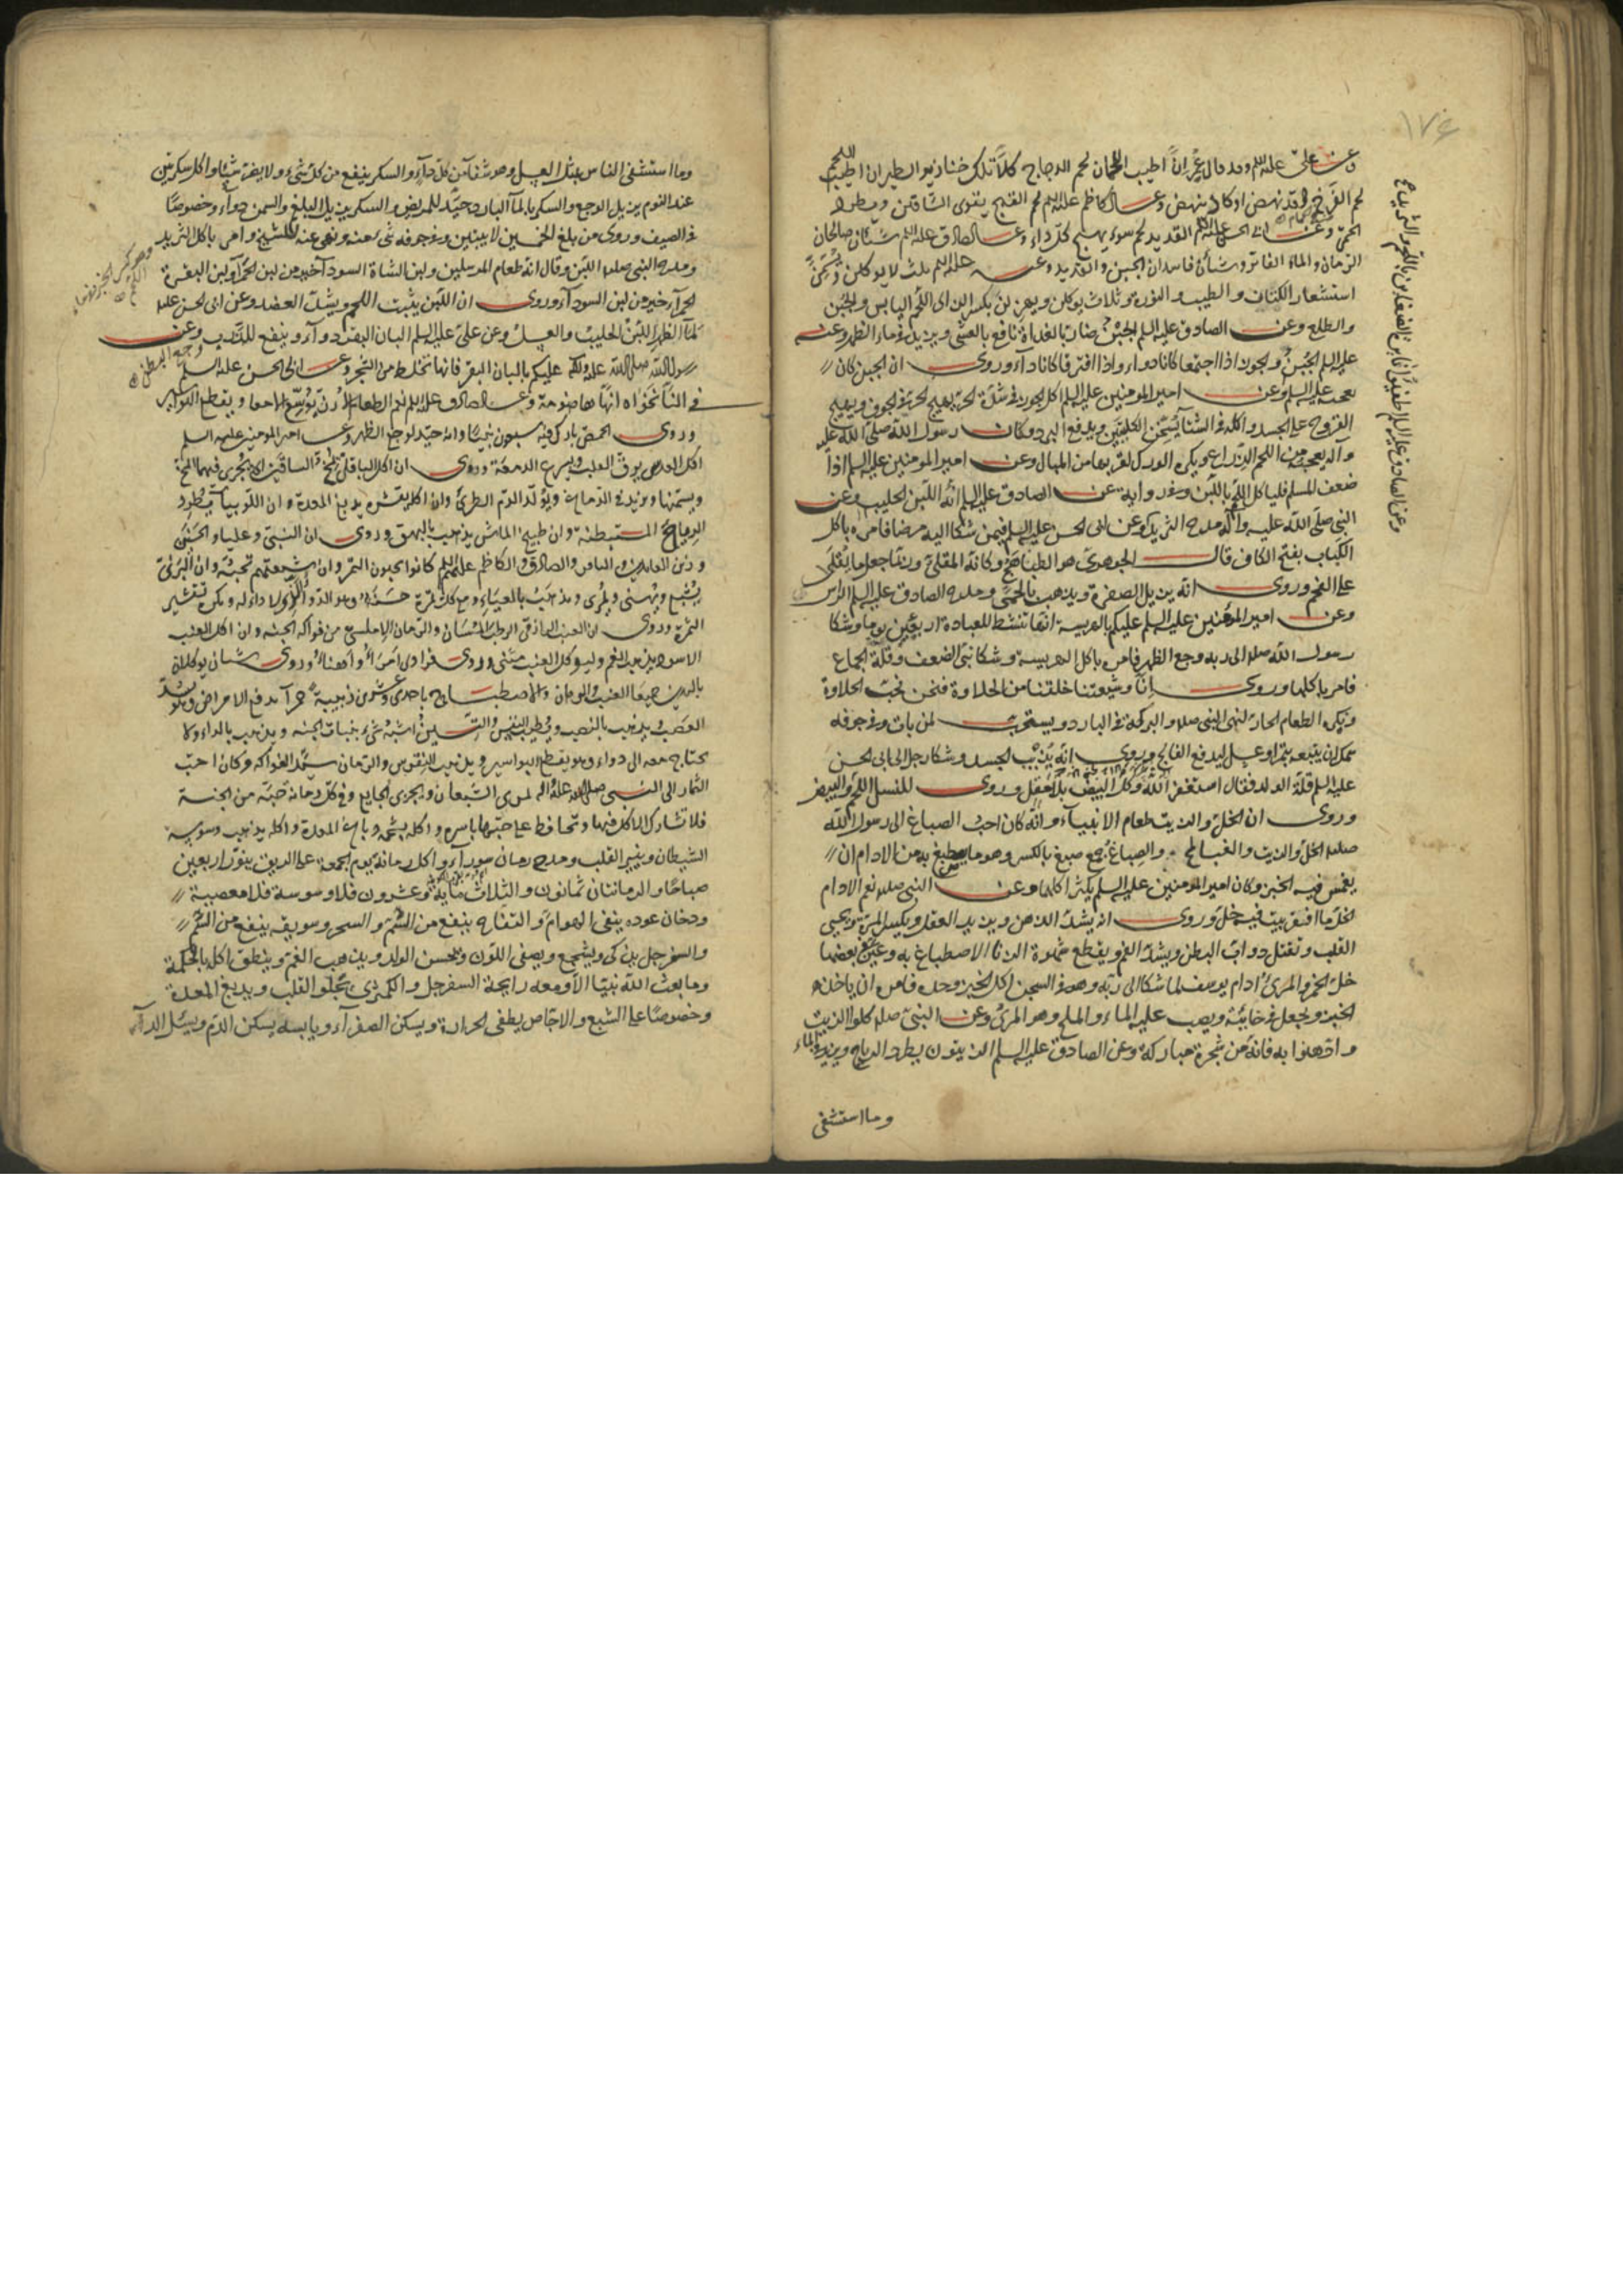 ١٧٤
وعن علي عليه السلم وقد قال عمر ان اطيب اللحمان لحم الدجاج كلا تلك خنازير الطير ان اطيب اللحم
لحم الفرخ قد نهض او كاد ينهض وعن الكاظم عليه السلم لحم القبج يقوى الساقين ويطرد
الحمى وعن ابى الحسن عليه السلم القديد لحم سوء يهيج كل داء وعن الصادق عليه السلم شيئان صالحان
الرمان والماء الفاتر وشيئان فاسدان الجبن والقديد وعنه عليه السلم ثلث لا يوكلن ويسمن
استشعار الكتان والطيب والنورة وثلاث يوكلن ويهزلن بكسر الزاى اللحم اليابس والجبن
والطلع وعن الصادق عليه السلم الجبن ضار بالغداة نافع بالعشى ويزيد في ماء الظهر وعنه
عليه السلم الجبن والجوز اذا اجتمعا كانا دواء واذا افترقا كانا داء وروى ان الجبن كان
يعجبه عليه السلم وعن امير المومنين عليه السلم اكل الجوز في شدة الحر يهيج الحر في الجوف ويهيج
القروح على الجسد واكله في الشتاء يسخن الكليتين ويدفع البرد وكان رسول الله صلى الله عليه
وآله يعجبه من اللحم الذراع ويكره الورك لقربها من المبال وعن امير المومنين عليه السلم اذا
ضعف المسلم فلياكل اللحم باللبن وفى رواية عن الصادق عليه السلم انه اللبن الحليب وعن
النبى صلى الله عليه وآله مدح الثريد وعن ابى الحسن عليه السلم فيمن شكا اليه مرضا فامره باكل
الكباب بفتح الكاف قال الجوهرى هو الطباهج وكانه المقلى وربما جعل ما يقلى
على الفحم وروى انه يزيل الصفرة ويذهب بالحمى ومدح الصادق عليه السلم الراس
وعن امير المومنين عليه السلم عليكم بالهريسة انها تنشط للعبادة اربعين يوما وشكا
رسول الله صلم الى ربه وجع الظهر فامره باكل الهريسة وشكا نبى الضعف وقلة الجماع
فامر باكلها وروى انا وشيعتنا خلقنا من الحلاوة فنحن نحب الحلاوة
ويكره الطعام الحار لنهى النبى صلم والبركة في البارد ويستحب لمن بات وفى جوفه
سمك ان يتبعه بتمر او عسل ليدفع الفالج وروى انه يذيب الجسد وشكا رجل الى ابى الحسن
عليه السلم قلة الولد فقال استغفر الله وكل البيض بالبصل وروى للنسل اللحم والبيض
وروى ان الخل والزيت طعام الانبياء وانه كان احب الصباغ الى رسول الله
صلم الخل والزيت والصباغ جمع صبغ بالكسر وهو ما يصطبغ به من الادام ان
يغمس فيه الخبز وكان امير المومنين عليه السلم يكثر اكلهما وعن النبى صلم نعم الادام
الخل ما افتقر بيت فيه خل وروى انه يشد الذهن ويزيد العقل ويكسر المرة ويحيى
القلب ويقتل دواب البطن ويشد الفم ويقطع شهوة الزنا الاصطباغ به وعين بعضها
خل الخمر والمرى ادام يوسف لما شكا الى ربه وهو في السجن اكل الخبز وحده فامره ان ياخذ
الخبز ويجعل في خابية ويصب عليه الماء والملح وهو المرى وعن النبى صلم كلوا الزيت
وادهنوا به فانه من شجرة مباركة وعن الصادق عليه السلم الزيتون يطرد الرياح ويزيد في الماء
وما استشفى
وما استشفى الناس بمثل العسل وهو شفآء من كل دآء والسكر ينفع من كل شىء ولا يضر شيئا واكل سكرتين
عند النوم يزيل الوجع والسكر بالمآء البارد جيد للمريض والسكر يزيل البلغم والسمن دوآء وخصوصا
في الصيف وروى من بلغ الخمسين لا يبيتن وفى جوفه شىء منه ونهى عنه للشيخ وامر باكل الثريد
ومدح النبى صلم اللبن وقال انه طعام المرسلين ولبن الشاة السودآء خير من لبن الحمرآء ولبن البقرة
الحمرآء خير من لبن السودآء وروى ان اللبن ينبت اللحم ويشد العضد وعن ابى الحسن عليه
لمآء الظهر اللبن الحليب والعسل وعن على عليه السلم البان البقر دوآء وينفع للذرب وعن
رسول الله صلى الله عليه وآله عليكم بالبان البقر فانها تخلط من الشجر وعن ابى الحسن عليه السلم
في النانخواه انها هاضومة وعن الصادق عليه السلم نعم الطعام الارز يوسع الامعاء ويقطع البواسير
وروى الحمص بارك فيه سبعون نبيا وانه جيد لوجع الظهر وعن امير المومنين عليه السلم
اكل العدس يرق القلب ويسرع الدمعة وروى ان اكل الباقلى يمخ الساقين اى يجرى فيهما المخ
ويسمنها ويزيد في الدماغ ويولد الدم الطرى وان اكله بقشره يدبغ المعدة وان اللوبيا تطرد
الرياح المستبطنة وان طبيخ الماش يذهب بالبهق وروى ان النبى وعليا والحسنين
وزين العابدين والباقر والصادق والكاظم عليهم السلم كانوا يحبون التمر وان شيعتهم تحبه وان البرنى
يشبع ويهنى ويمرى ويذهب بالعياء ومع كل تمرة حسنة وهو الدواء الذى لا داء له ويكره تقشير
التمرة وروى ان العنب الرازقى والرطب المشان والرمان الامليسى من فواكه الجنه وان اكل العنب
الاسود يذهب الغم وليوكل العنب مثنى وروى فرادى امرأ واهنأ وروى شيئان يوكلان
باليدين جميعا العنب والرمان والاصطباح باحدى وعشرين زبيبة حمرآء يدفع الامراض وهو يشد
العصب ويذهب بالنصب ويطيب النفس والتين اشبه شىء بنبات الجنه ويذهب بالداء ولا
يحتاج معه الى دواء وهو يقطع البواسير ويذهب النقرس والرمان سيد الفواكه وكان احب
الثمار الى النبى صلى الله عليه وآله يمرى الشبعان ويجزى الجايع وفى كل رمانة حبة من الجنة
فلا تشارك الاكل فيها وتحافظ على حبها باسره واكله بشحمه دباغ المعدة واكله يذهب وسوسة
الشيطان وينير القلب ومدح رمان سورآء واكل رمانة يوم الجمعة على الريق ينور اربعين
صباحا والرمانتان ثمانون والثلاث مأية وعشرون فلا وسوسة فلا معصية
ودخان عوده ينفى الهوام والتفاح ينفع من السم والسحر وسويقه ينفع من السم
والسفرجل يذكى ويشجع ويصفى اللون ويحسن الولد ويذهب الغم وينطق اكله بالحكمة
وما بعث الله نبيا الا ومعه رايحة السفرجل والكمثرى يجلو القلب ويدبغ المعدة
وخصوصا على الشبع والاجاص يطفى الحرارة ويسكن الصفرآء ويابسه يسكن الدم ويسل الدآء